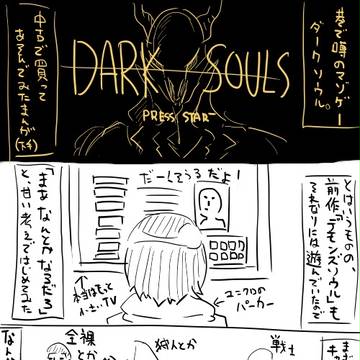 巷で噂のマゾゲー
ダークソウル。
DARK SOULS
PRESS STAR
中古で買って
あそんでみたまんが
だーくそうるだよ!
とはいうものの、
前作「デモンズソウル」も
それなりには遊んでいたので
ユニクロの
パーカー
本当はもっと
小さいTV
「まあなんとかなるだろ」
と、甘い考えではじめてみた
戦士
狩人とか
全裸
とか